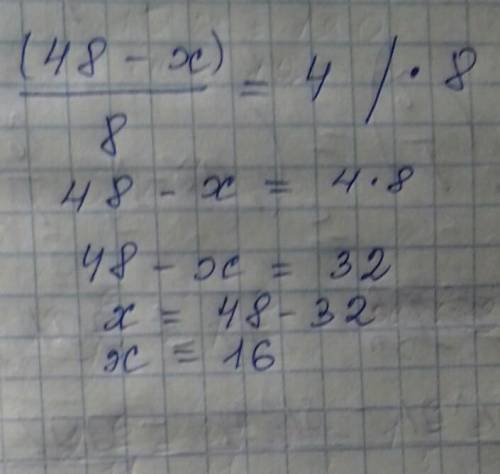 (48 - x) = 4 / · 8
8
48 - x = 4 · 8
48 - x = 32
x = 48 - 32
x = 16